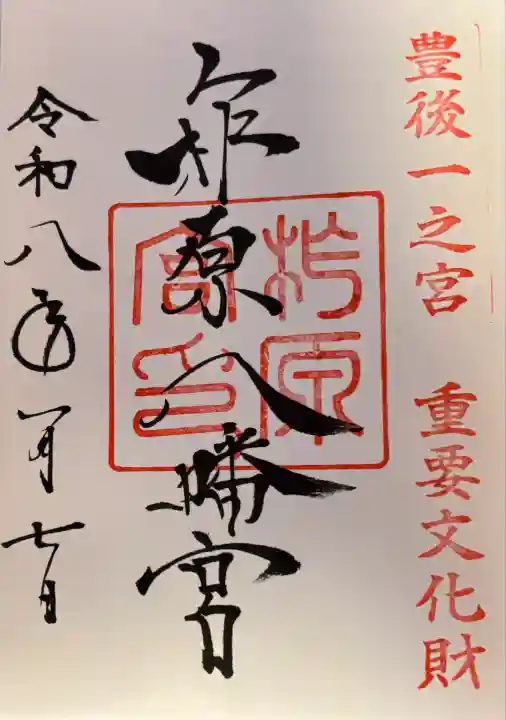 豊後一之宮 重要文化財
柞原八幡宮
柞原
宮印
令和八年 月七日